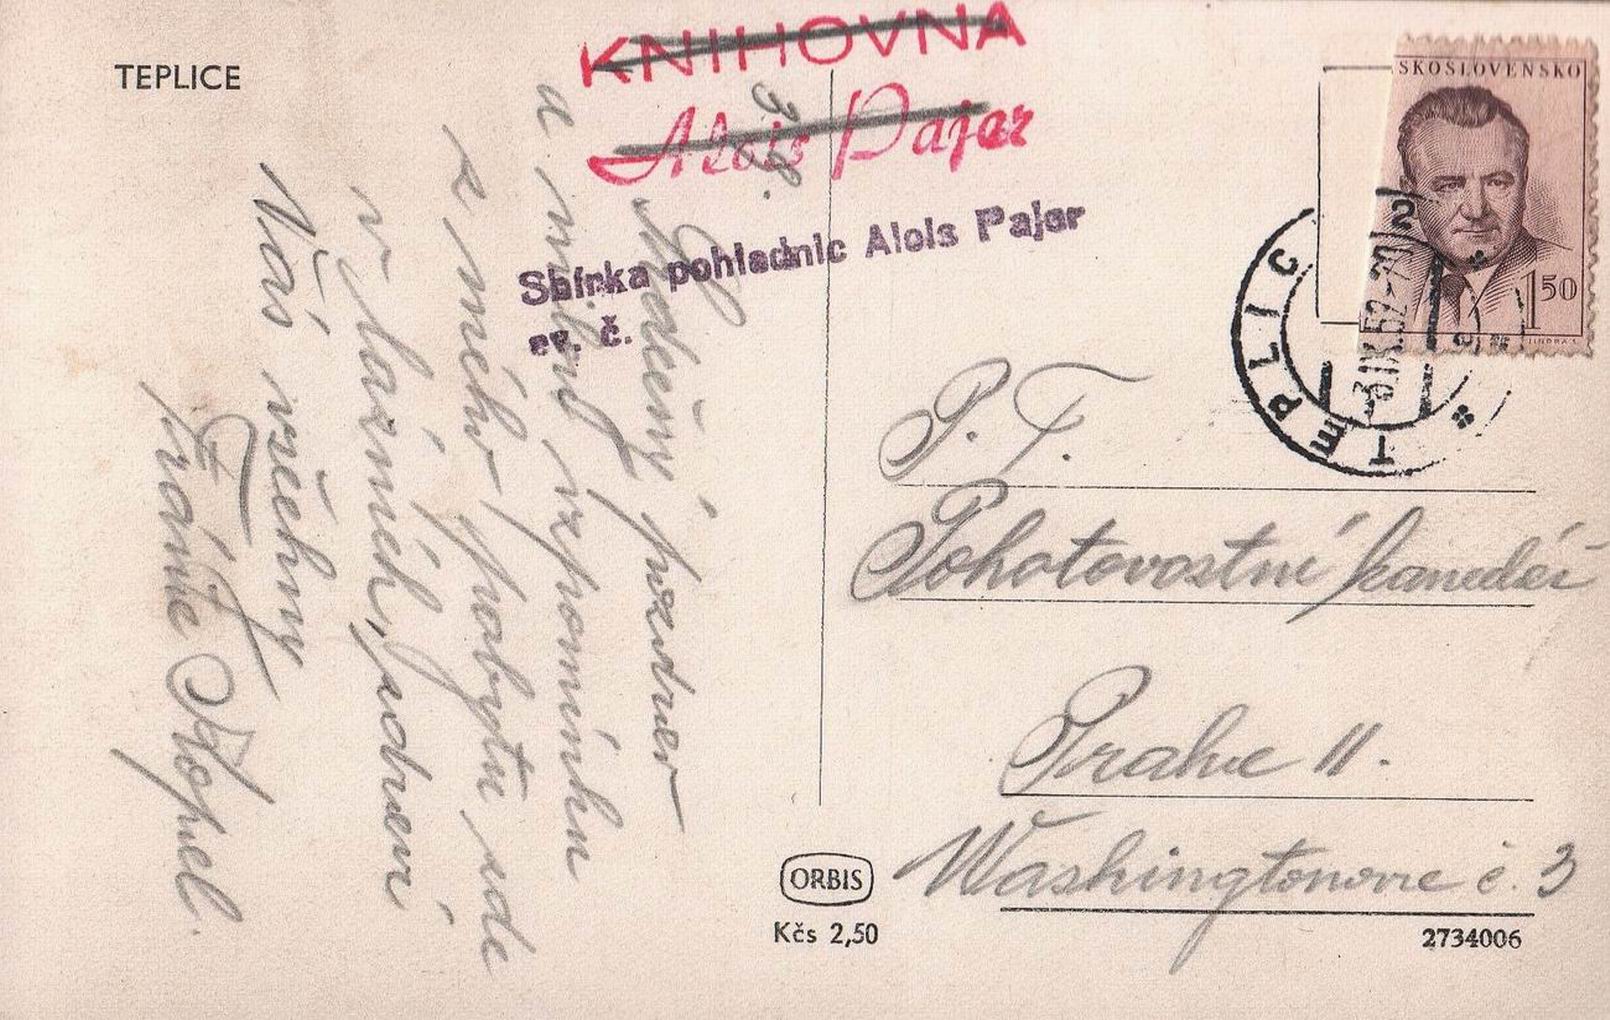 TEPLICE
KNIHOVNA
Alois Pajer
Sbírka pohlednic Alois Pajer
ev. č.
Srdečný pozdrav
a milou vzpomínku
z mého pobytu zde
v lázních, zdraví
Vás všechny
SKOSLOVENSKO
1 50
TEPLICE
2
P. T.
Pohotovostní
Praha II.
Washingtonova č. 3
ORBIS
Kčs 2,50
2734006